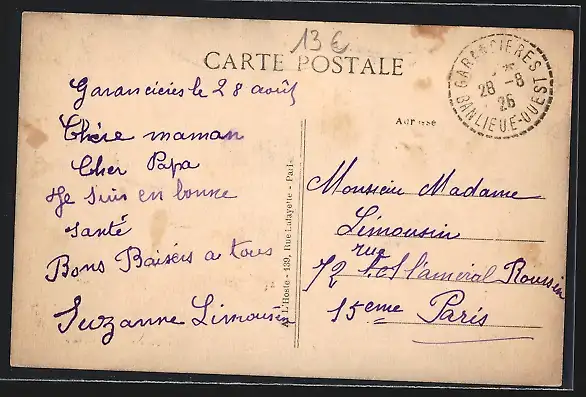 13 €
CARTE POSTALE
GARANCIERES
28 -8
26
BANLIEUE-OUEST
Garancières le 28 août
Chère maman
Cher Papa
Je suis en bonne
santé
Bons Baisers a tous
Suzanne Limousin
A. L'Hoste - 139, Rue Lafayette - Paris
Adresse
Monsieur Madame
Limousin
rue
72 l'ameral Roussin
15eme Paris